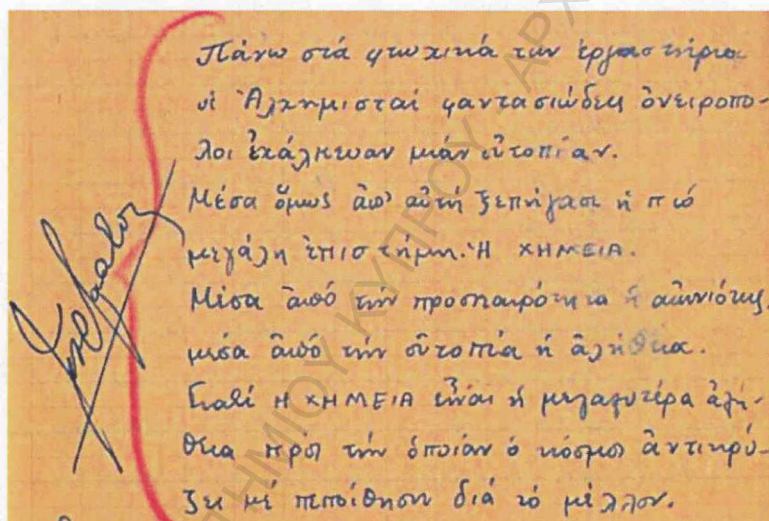 Πάνω στά φτωχικά των ἐργαστήρια
οἱ Ἀλχημισταί φαντασιώδεις ὀνειροπό-
λοι ἐχάλκευαν μιάν οὐτοπίαν.
Μέσα ὅμως ἀπ' αὐτή ξεπήγασε ἡ πιό
μεγάλη ἐπιστήμη. Ἡ ΧΗΜΕΙΑ.
Μέσα ἀπό τήν προσκαιρότητα ἡ αἰωνιότης,
μέσα ἀπό τήν οὐτοπία ἡ ἀλήθεια.
Γιατί Η ΧΗΜΕΙΑ εἶναι ἡ μεγαλυτέρα ἀλή-
θεια πρός τήν ὁποίαν ὁ κόσμος ἀντικρύ-
ζει μέ πεποίθησιν διά τό μέλλον.
ΤΗΜΙΟΥ ΚΥΠΡΟΥ - ΑΡΧ